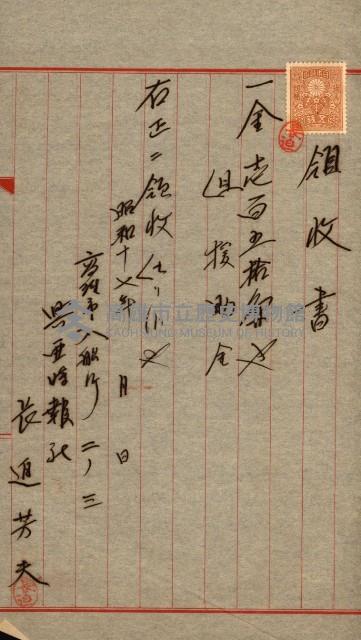 領收書
一金壱百五拾圓也
但援助金
右正ニ領收候也
昭和十 年 月 日
高雄市入船町二ノ三
興亜時報社
長迫芳夫
高雄市立歷史博物館
KAOHSIUNG MUSEUM OF HISTORY